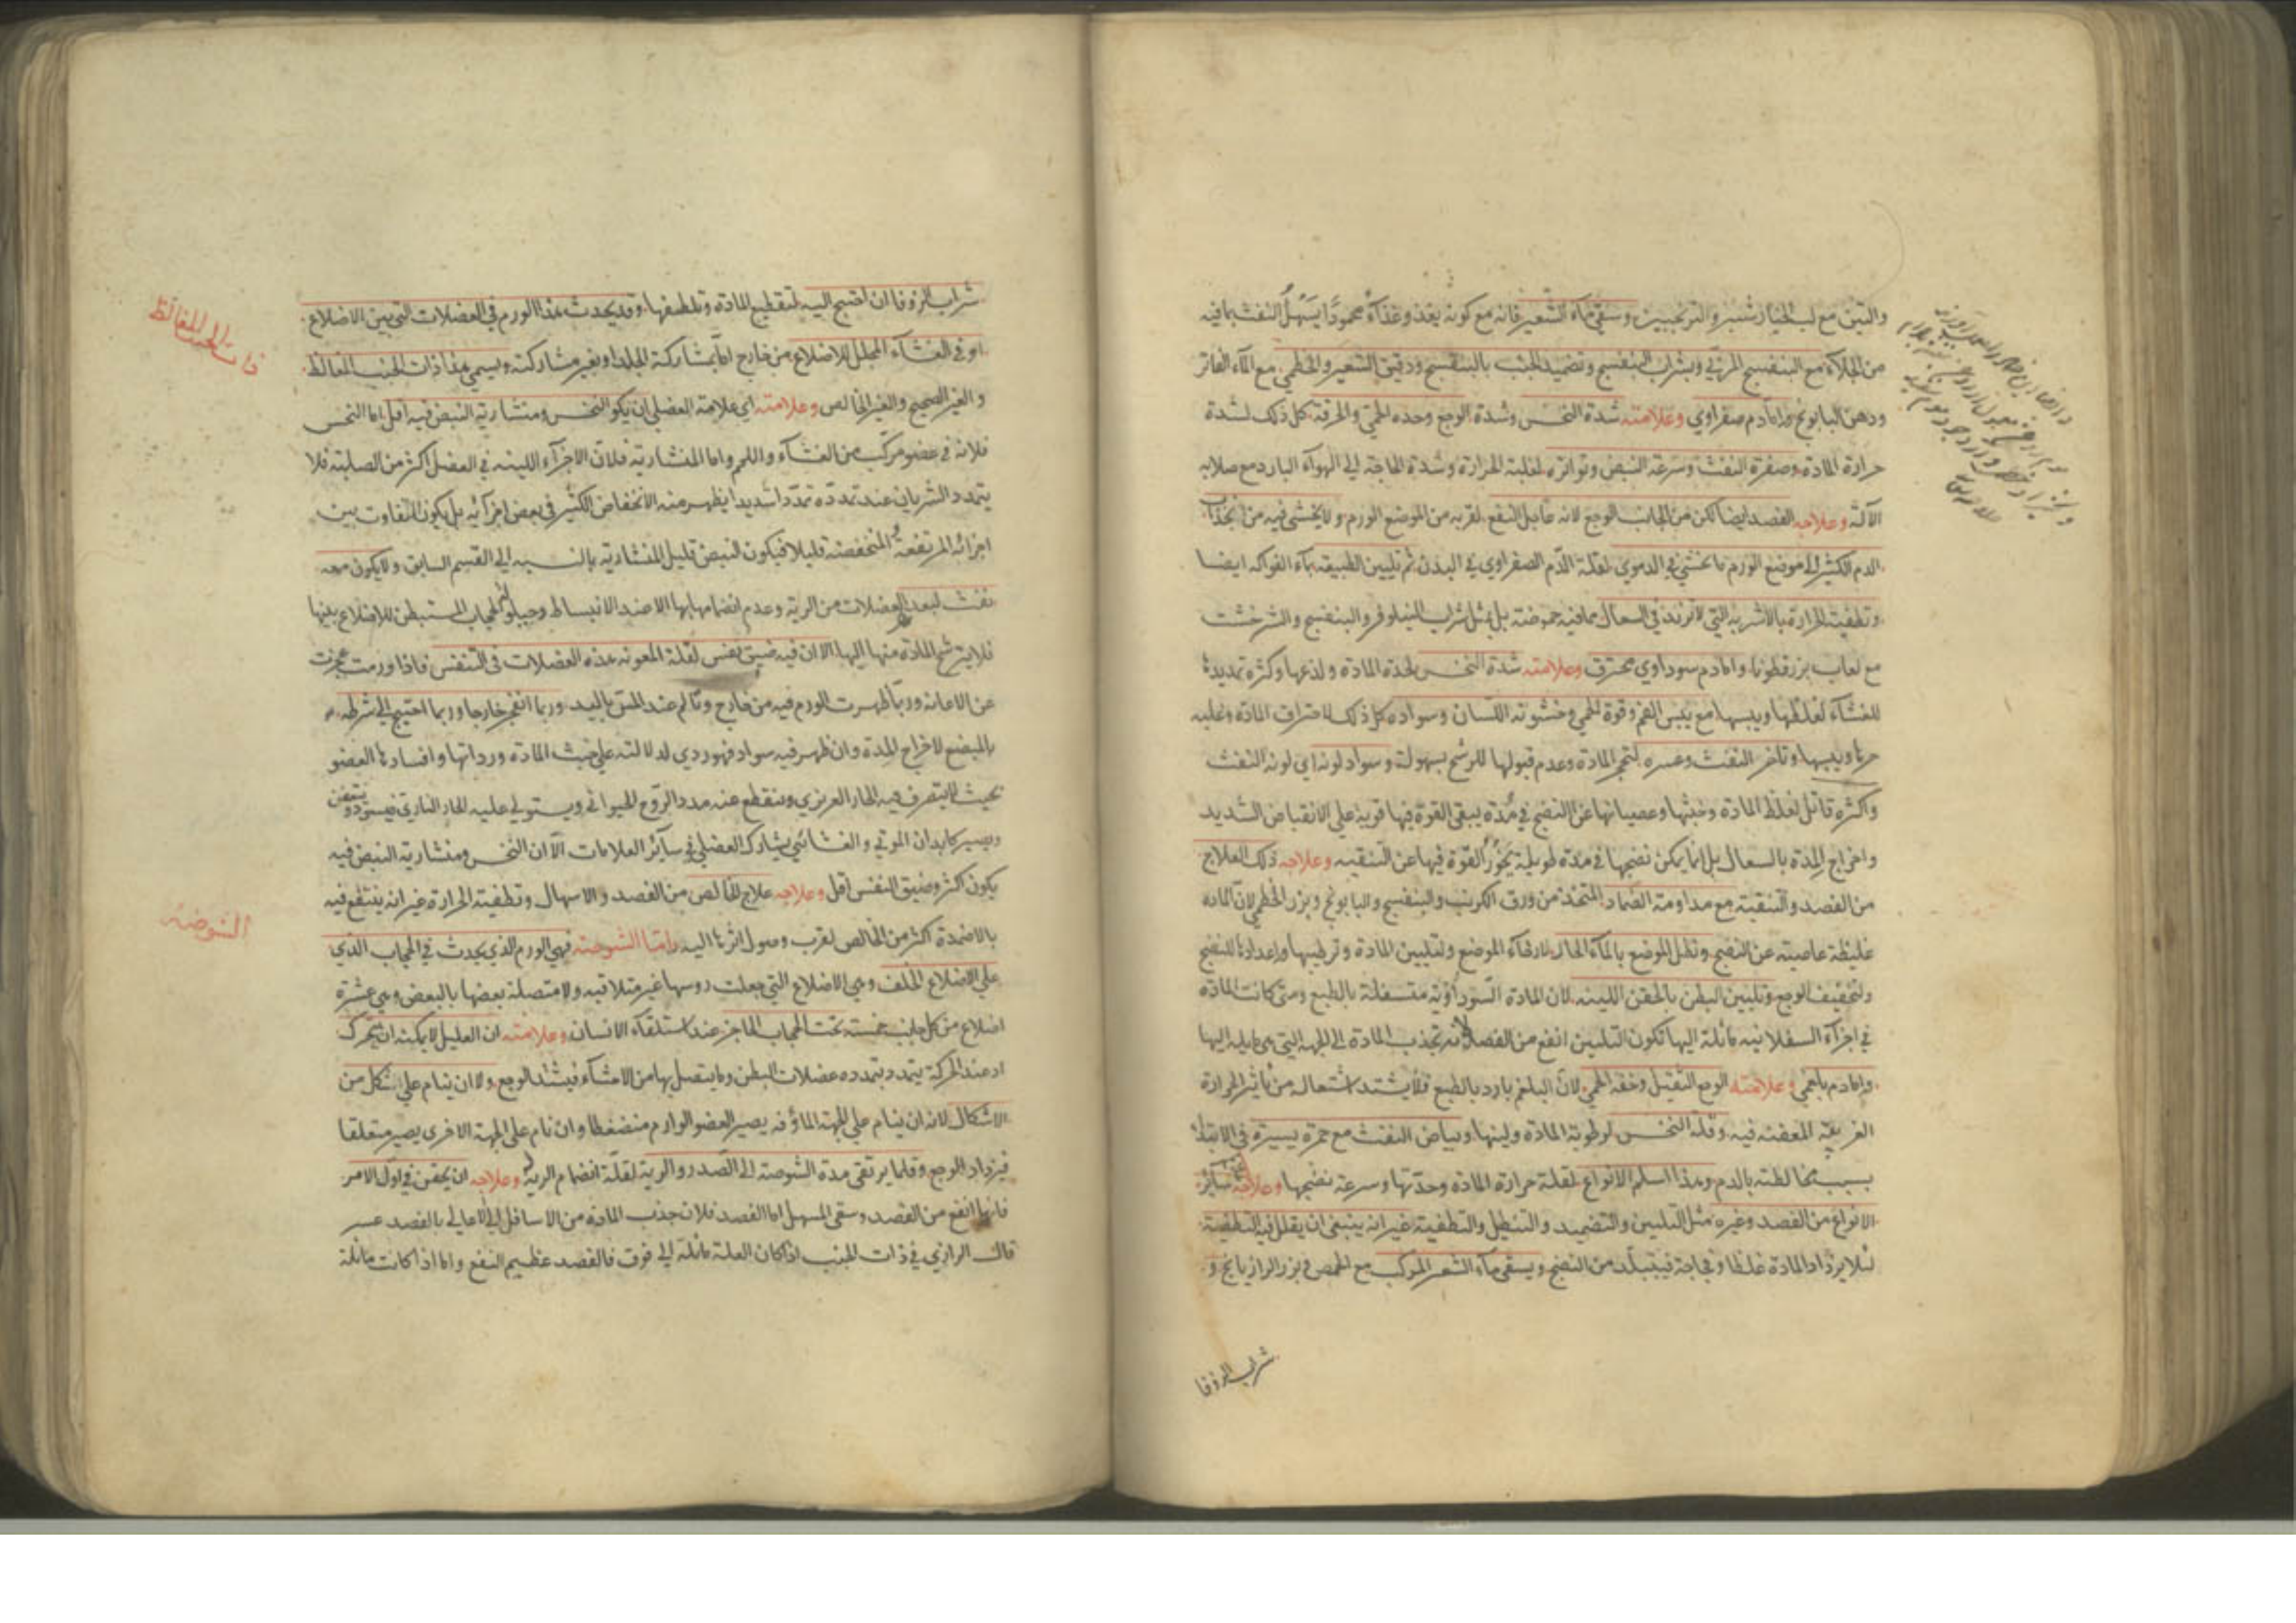 والتين مع لب الخيار شنبر والترنجبين وسقي ماء الشعير فانه مع كونه يغذو غذاء محمودا يسهل النفث بما فيه
من الجلاء مع البنفسج المربي وبشراب البنفسج وتضميد الجنب بالبنفسج ودقيق الشعير والخطمي مع الماء الفاتر
ودهن البابونج واما دم صفراوي وعلامته شدة النخس وشدة الوجع وحدة الحمي والحرقة كل ذلك لشدة
حرارة المادة وصفرة النفث وسرعة النبض وتواتره لغلبة الحرارة وشدة الحاجة الي الهواء البارد مع صلابه
الآلة وعلاجه الفصد ايضا لكن من الجانب الوجع لانه عاجل النفع لقربه من الموضع الورم ولا يخشى فيه من انجذاب
الدم الكثير الى موضع الورم ما يخشي في الدموي لقلة الدم الصفراوي في البدن ثم تليين الطبيعة بماء الفواكه ايضا
وتطفية الحرارة بالاشربة التي لا تزيد في السعال مما فيه حموضة بل بمثل شراب النيلوفر والبنفسج والشرخشت
مع لعاب بزرقطونا واما دم سوداوي محترق وعلامته شدة النخس لحدة المادة ولذعها وكثرة تمديدها
للغشاء لغلظها ويبسها مع يبس الفم وقوة الحمي وخشونة اللسان وسواده كل ذلك لاحتراق المادة وغلبه
حرها ويبسها وتاخر النفث وعسره لتحجر المادة وعدم قبولها للرشح بسهولة وسواد لونه اي لونه النفث
واكثره قاتل لغلظ المادة وخبثها وعصيانها عن النضج في مدة يبقى القوة فيها قوية علي الانقباض الشديد
واخراج المدة بالسعال بل انما يمكن نضجها في مدة طويلة يخور القوة فيها عن التنقيه وعلاجه ذلك العلاج
من الفصد والتنقية مع مداومة الضماد المتخذ من ورق الكرنب والبنفسج والبابونج وبزر الخطمي لان المادة
غليظة عاصية عن النضج وتطل الموضع بالماء الحار لارخاء الموضع ولتليين المادة وترطيبها واعدادها للنضج
ولتخفيف الوجع وتليين البطن بالحقن اللينه لان المادة السوداوية متسفلة بالطبع ومتى كانت المادة
في اجزاء السفلانيه مائلة اليها تكون التليين انفع من الفصد لانه تجذب المادة الى الجهة التي هي مايله اليها
واما دم بلغمي وعلامته الوجع الثقيل وخفة الحمي لان البلغم بارد بالطبع فلا يشتد اشتعاله من تأثير الحرارة
الغريبة المعفنة فيه وقلة النخس لرطوبة المادة ولينها وبياض النفث مع حمرة يسيرة في الابتداء
بسبب مخالطته بالدم وهذا اسلم الانواع لقلة حرارة المادة وحدتها وسرعة نضجها وعلاجه سائر
الانواع من الفصد وغيره مثل التليين والتضميد والتنطيل والتطفية غير انه ينبغي ان يقلل فيه التطفية
لئلا يزداد المادة غلظا وفجاجة فيتبلد من النضج ويسقى ماء الشعير المركب مع الحمص وبزر الرازيانج و
شراب الزوفا
شراب الزوفا ان احتيج اليه لتقطيع المادة وتلطيفها وقد يحدث هذا الورم في العضلات التي بين الاضلاع
او في الغشاء المجلل للاضلاع من خارج اما بمشاركة الجلد او بغير مشاركته ويسمي هذا ذات الجنب المغالط
والغير الصحيح والغير الخالص وعلامته اي علامة العضلي ان يكون النخس ومنشارية النبض فيه اقل اما النخس
فلانه في عضو مركب من الغشاء واللحم واما المنشارية فلان الاجزاء اللينه في العضل اكثر من الصلبة فلا
يتمدد الشريان عند تمدده تمددا شديدا يظهر منه الانخفاض الكثير في بعض اجزائه بل يكون التفاوت بين
اجزائه المرتفعة والمنخفضة قليلا فيكون النبض قليل المنشارية بالنسبه الي القسم السابق ولا يكون معه
نفث لبعد العضلات من الرية وعدم انضمامها بها الا عند الانبساط وحيلولة الحجاب المستبطن للاضلاع بينها
فلا يترشح المادة منها اليها الا ان فيه ضيق نفس لقلة المعونة هذه العضلات في التنفس فاذا ورمت عجزت
عن الاعانة وربما ظهرت الورم فيه من خارج وتالم عند المس باليد وربما انفجر خارجا وربما احتيج الي شرطه
بالمبضع لاخراج المدة وان ظهر فيه سواد فهو ردي لدلالته علي خبث المادة ورداتها وافسادها العضو
بحيث لا يتصرف فيه الحار الغريزي وينقطع عنه مدد الروح الحيواني ويستولي عليه الحار الناري فيسود ويتعفن
ويصير كابدان الموتي والغشائي يشارك العضلي في سائر العلامات الا ان النخس ومنشارية النبض فيه
يكون اكثر وضيق النفس اقل وعلاجه علاج الخالص من الفصد والاسهال وتطفية الحرارة غير انه ينتفع فيه
بالاضمدة اكثر من الخالص لقرب وصول اثرها اليه واما الشوصة فهي الورم الذي يحدث في الحجاب الذي
علي الاضلاع الخلف وهي الاضلاع التي جعلت روسها غير متلاقيه ولا متصلة بعضها بالبعض وهي عشرة
اضلاع من كل جانب خمسة تحت الحجاب الحاجز عند استلقاء الانسان وعلامته ان العليل لا يمكنه ان يتحرك
اذ عند الحركة يتمدد بتمدده عضلات البطن وما يتصل بها من الاحشاء فيشتد الوجع ولا ان ينام علي شكل من
الاشكال لانه ان ينام علي الجهة الماؤفه يصير العضو الوارم منضغطا وان نام علي الجهة الاخري يصير متعلقا
فيزداد الوجع وقلما يرتقي مدة الشوصة الى الصدر والرية لقلة انضمام الرية وعلاجه ان يحقن في اول الامر
فانها انفع من الفصد وسقى المسهل اما الفصد فلان جذب المادة من الاسافل الي الاعالي بالفصد عسر
قال الرازي في ذات الجنب اذا كان العلة مائلة الي فوق فالفصد عظيم النفع واما اذا كانت مائلة
ذات الجنب المغالط
الشوصة